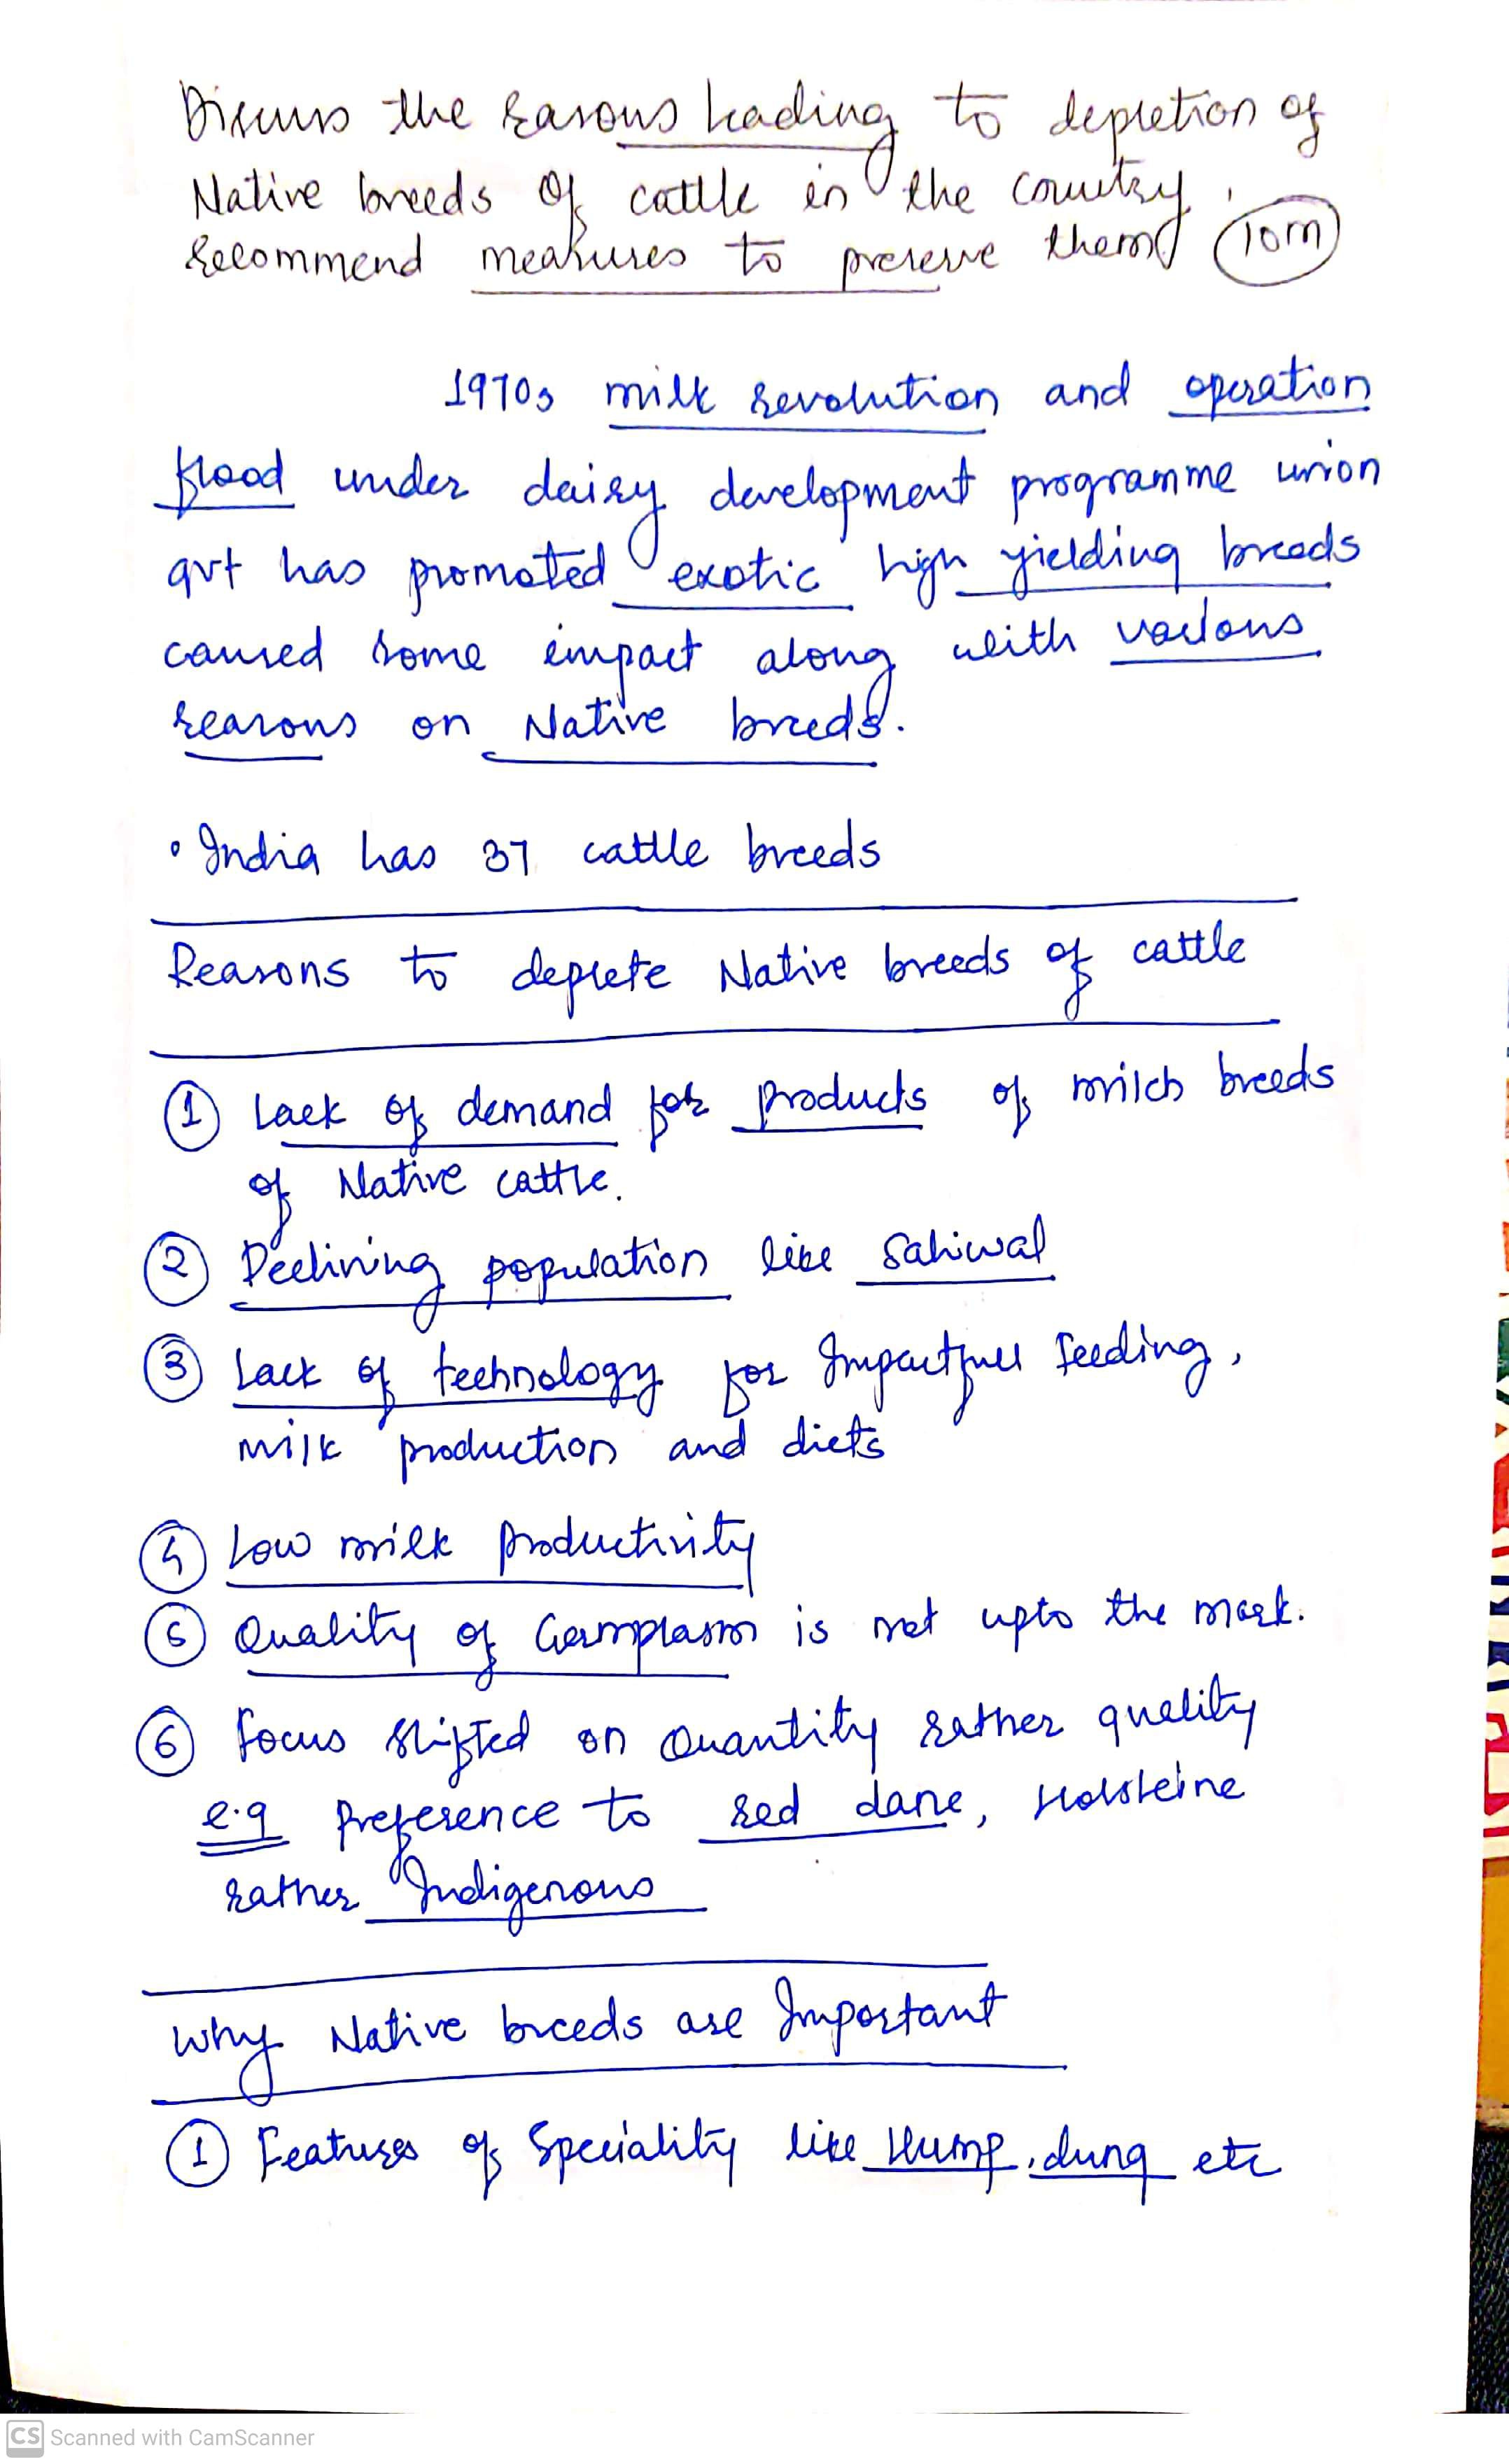 Discuss the reasons leading to depletion of
Native breeds of cattle in the country,
recommend measures to preserve them 10m
1970s milk revolution and operation
flood under dairy development programme union
gvt has promoted exotic high yielding breeds
caused some impact along with various
reasons on Native breeds.
• India has 37 cattle breeds
Reasons to deplete Native breeds of cattle
① Lack of demand for products of milch breeds
of Native cattle.
② Declining population like Sahiwal
③ Lack of technology for Impactfull feeding,
milk production and diets
④ Low milk productivity
⑤ Quality of Germplasm is not upto the mark.
⑥ Focus shifted on Quantity rather quality
e.g Preference to red dane, Holsteine
rather Indigenous
Why Native breeds are Important
① Features of Speciality like Hump, dung etc
CS Scanned with CamScanner